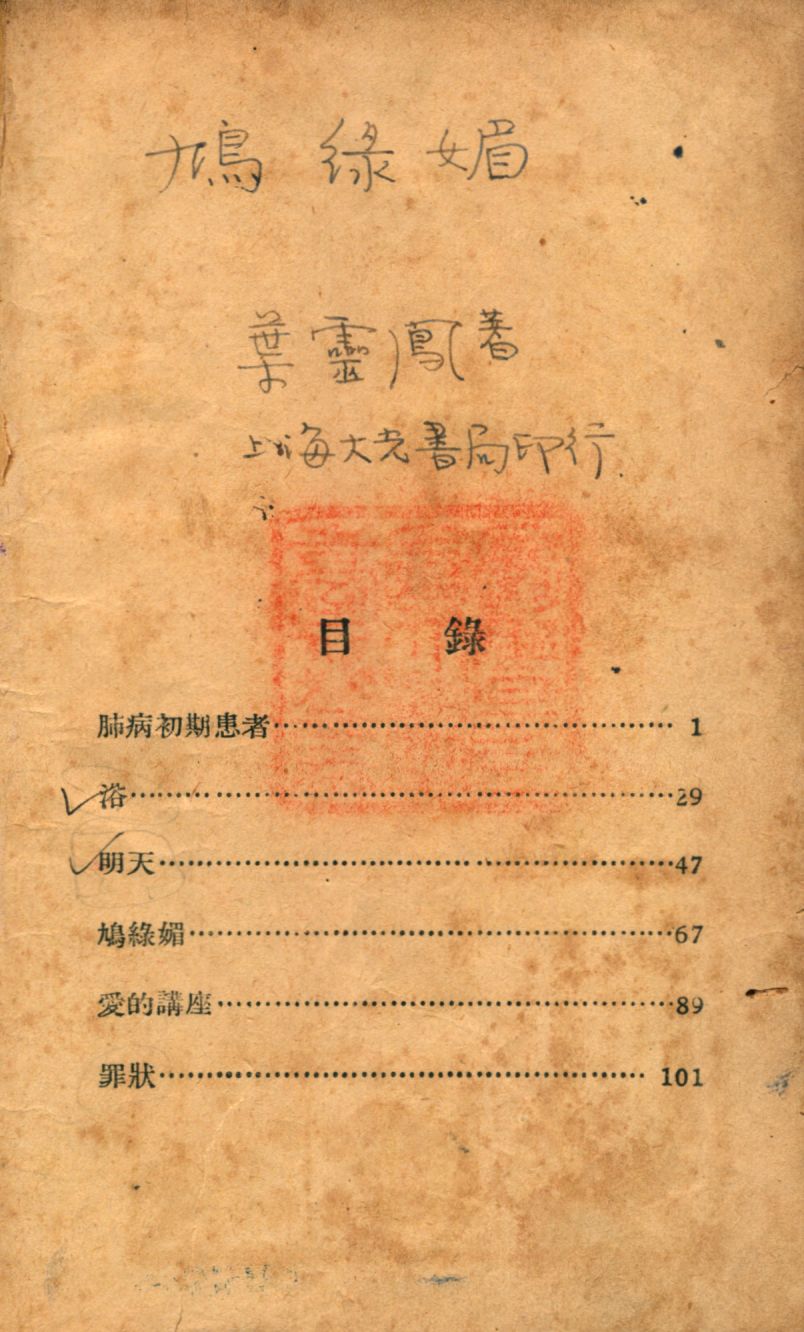 鳩綠媚
葉靈鳳著
上海大光書局印行
目錄
肺病初期患者…………………………………… 1
浴……………………………………………………29
明天…………………………………………………47
鳩綠媚………………………………………………67
愛的講座……………………………………………89
罪狀……………………………………………… 101